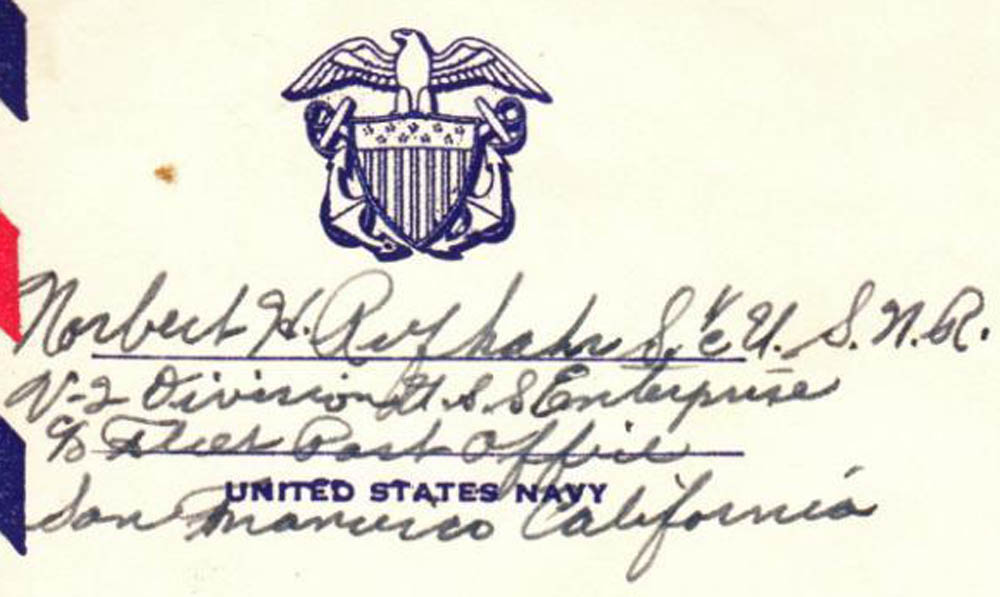 Norbert H. S. 1/c U.S.N.R.
V-2 Division U.S.S Enterprise
c/o Fleet Post Office
UNITED STATES NAVY
San Francisco California